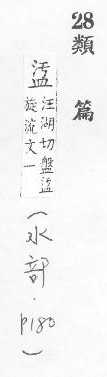 28類篇
盓汪湖切盤盓
旋流文一
(水部·P180)